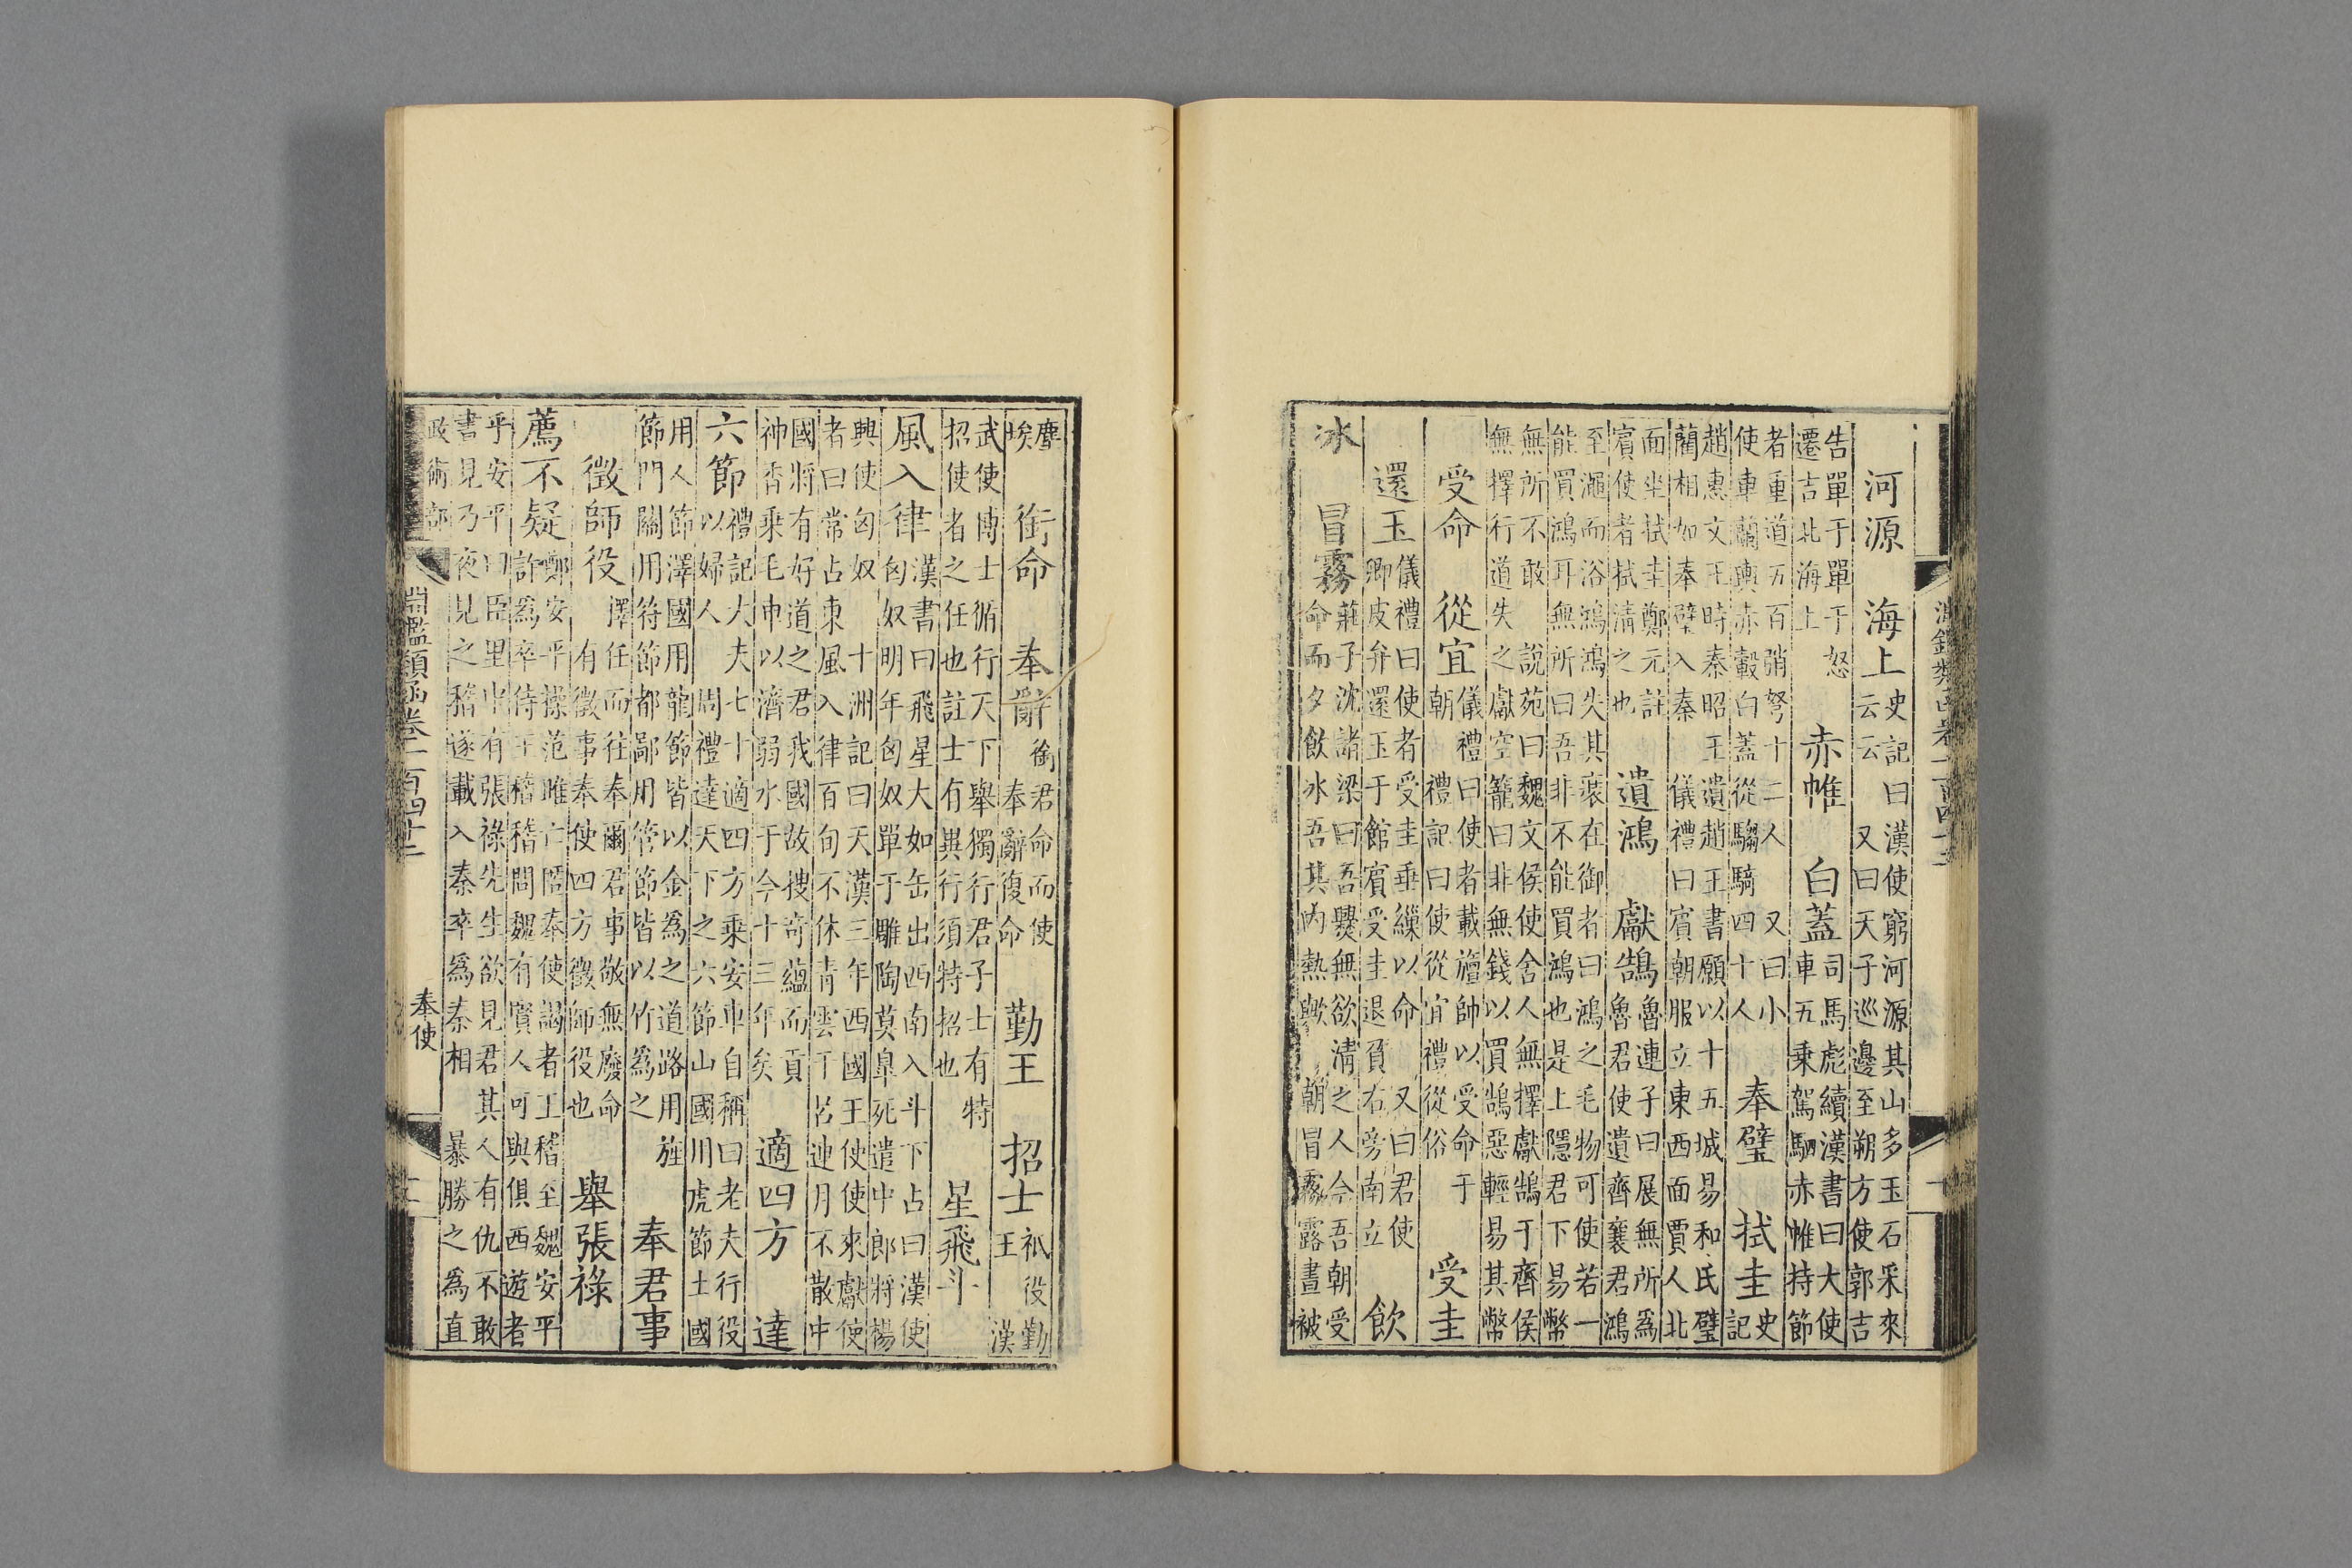 河源 海上 史記曰漢使窮河源其山多玉石采來云云 又曰天子巡邊至朔方使郭吉
告單于單于怒遷吉北海上 赤帷 白蓋 司馬彪續漢書曰大使車五乘駕駟赤帷持節
者重道五百弰弩十二人 又曰小使車蘭輿赤轂白蓋從騶騎四十人 奉璧 拭圭 史記
趙惠文王時秦昭王遺趙王書願以十五城易和氏璧藺相如奉璧入秦 儀禮曰賓朝服立東西面賈人北
面坐拭圭鄭元註賓使者拭清之也 遺鴻 獻鵠 魯連子曰展無所爲魯君使遺齊襄君鴻
至澠而浴鴻鴻失其裝在御者曰鴻之毛物可使若一能買鴻耳無所曰吾非不能買鴻也是上隱君下易幣
無所不敢 說苑曰魏文侯使舍人無擇獻鵠于齊侯無擇行道失之獻空籠曰非無錢以買鵠惡輕易其幣
受命 從宜 儀禮曰使者載旜帥以受命于朝 禮記曰使從宜禮從俗 受圭
還玉 儀禮曰使者受圭垂繅以命 又曰君使卿皮弁還玉于館賓受圭退負右旁南立 飲
冰 冒霧 莊子沈諸梁曰吾爨無欲清之人今吾朝受命而夕飲冰吾其內熱歟 朝冒霧露晝被
塵埃 銜命 奉辭 銜君命而使奉辭復命 勤王 招士 祇役勤王 漢
武使博士循行天下舉獨行君子士有特招使者之任也註士有異行須特招也 星飛斗
風入律 漢書曰飛星大如缶出西南入斗下占曰漢使匈奴明年匈奴單于雕陶莫皐死遣中郎將楊
興使匈奴 十洲記曰天漢三年西國王使使來獻使者曰常占東風入律百旬不休靑雲干呂連月不散中
國將有好道之君我國故搜奇蘊而貢神香乘毛車以濟弱水于今十三年矣 適四方 達
六節 禮記大夫七十適四方乘安車自稱曰老夫行役以婦人 周禮達天下之六節山國用虎節土國
用人節澤國用龍節皆以金爲之道路用旌節門關用符節都鄙用管節皆以竹爲之 奉君事
徵師役 擇任而往奉爾君事敬無廢命 有徵事奉使四方徵師役也 舉張祿
薦不疑 鄭安平操范雎亡奉使謁者王稽至魏安平詐爲卒侍王稽稽問魏有賢人可與俱西遊者
乎安平曰臣里中有張祿先生欲見君其人有仇不敢書見乃夜見之稽遂載入秦卒爲秦相 暴勝之爲直
政術部 淵鑑類函卷一百四十二 奉使 十二